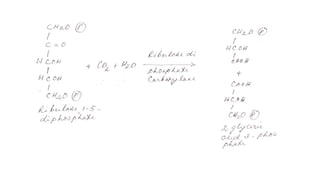 CH2O (P)
C = O
HCOH
HCOH
CH2O (P)
Ribulose 1-5-
diphosphate
+ CO2 + H2O
Ribulose di
phosphate
Carboxylase
CH2O (P)
HCOH
COOH
+
COOH
HCOH
CH2O (P)
2 glyceric
acid 3-phos
phate